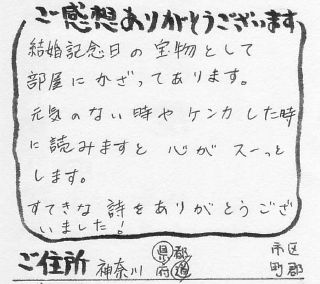 ご感想ありがとうございます
結婚記念日の宝物として
部屋にかざってあります。
元気のない時やケンカした時
に読みますと心がスーっと
します。
すてきな詩をありがとうござ
いました!
ご住所 神奈川 県都府道 市区町郡